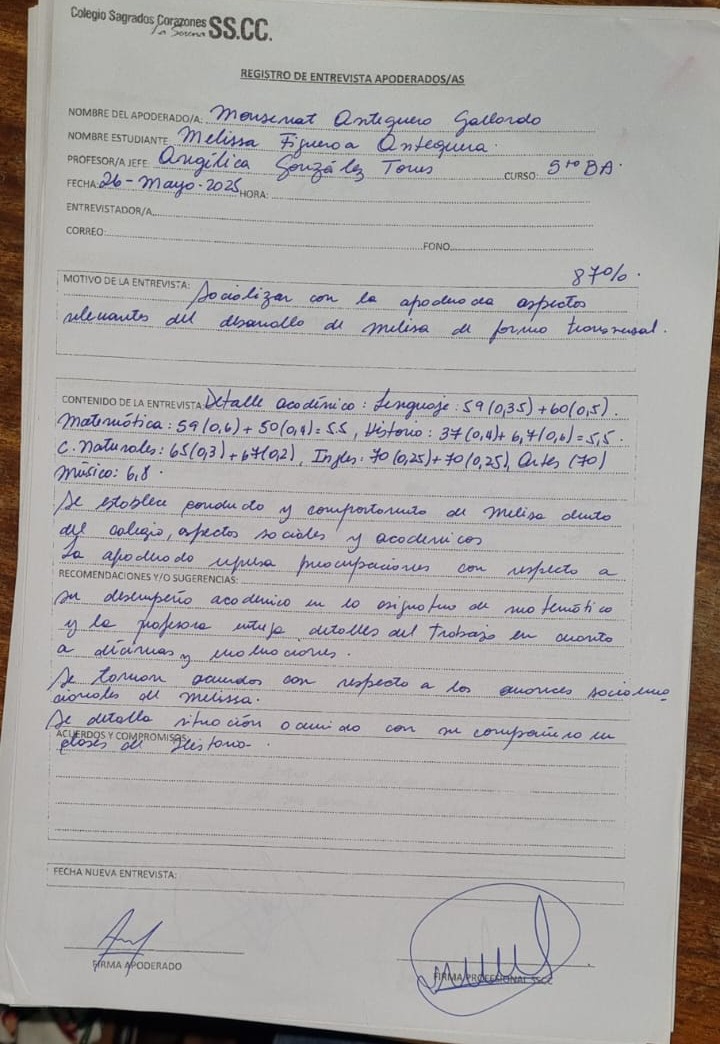 Colegio Sagrados Corazones SS.CC.
La Serena
REGISTRO DE ENTREVISTA APODERADOS/AS
NOMBRE DEL APODERADO/A: Monserrat Antequera Gallardo
NOMBRE ESTUDIANTE Melissa Figueroa Antequera.
PROFESOR/A JEFE: Angélica González Torres CURSO: 5to BA.
FECHA: 26-Mayo-2025 HORA:
ENTREVISTADOR/A
CORREO: FONO
87%.
MOTIVO DE LA ENTREVISTA: Socializar con la apoderada aspectos
relevantes del desarrollo de melisa de forma transversal.
CONTENIDO DE LA ENTREVISTA: Detalle académico: Lenguaje: 59(0,35) + 60(0,5).
Matemática: 59(0,6) + 50(0,4) = 5.5, Historia: 37(0,4) + 6,7(0,6) = 5,5.
C. Naturales: 65(0,3) + 67(0,2), Ingles: 70(0,25) + 70(0,25), Artes (70)
Música: 6,8.
Se establece conducta y comportamiento de Melisa dentro
del colegio, aspectos sociales y académicos
La apoderada expresa preocupaciones con respecto a
RECOMENDACIONES Y/O SUGERENCIAS:
su desempeño académico en la asignatura de matemática
y la profesora entrega detalles del trabajo en cuanto
a décimas y evaluaciones.
Se toman acuerdos con respecto a los avances socioemo
cionales de Melissa.
Se detalla situación ocurrida con su compañero en
ACUERDOS Y COMPROMISOS:
clases de Historia.
FECHA NUEVA ENTREVISTA:
FIRMA APODERADO
FIRMA PROFESIONAL SSCC